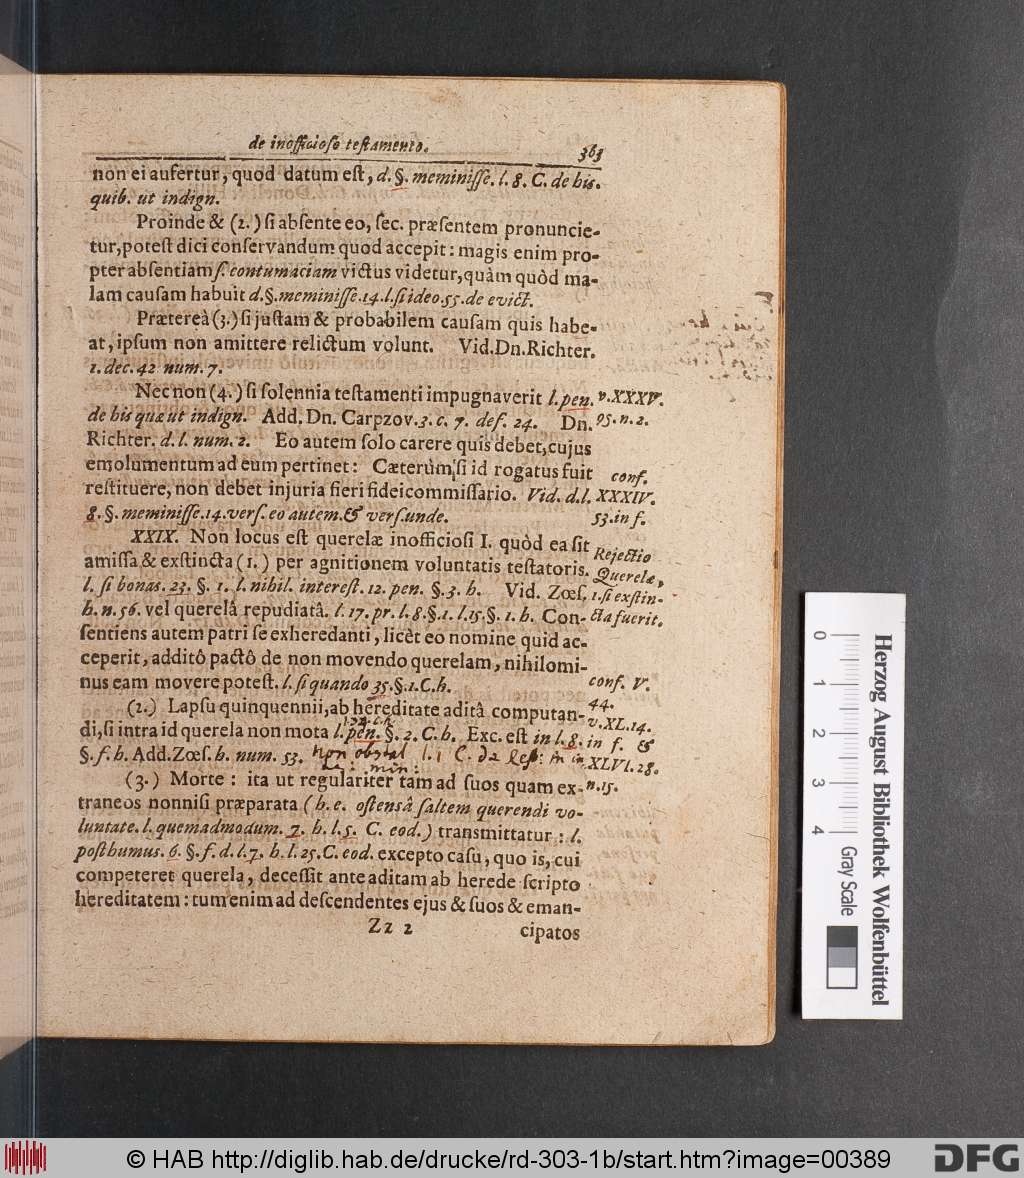 de inofficioso testamento. 363
non ei aufertur, quod datum est, d. §. meminisse. l. 8. C. de his.
quib. ut indign.
Proinde & (2.) si absente eo, sec. præsentem pronuncie-
tur, potest dici conservandum quod accepit: magis enim pro-
pter absentiam s. contumaciam victus videtur, quàm quòd ma-
lam causam habuit d. §. meminisse. 14. l. si ideo. 55. de evict.
Prætereà (3.) si justam & probabilem causam quis habe-
at, ipsum non amittere relictum volunt. Vid. Dn. Richter.
1. dec. 42 num. 7.
Nec non (4.) si solennia testamenti impugnaverit l. pen. v. XXXV.
de his quæ ut indign. Add. Dn. Carpzov. 3. c. 7. def. 24. Dn. 95. n. 2.
Richter. d. l. num. 2. Eo autem solo carere quis debet, cujus
emolumentum ad eum pertinet: Cæterùm, si id rogatus fuit conf.
restituere, non debet injuria fieri fideicommissario. Vid. d. l. XXXIV.
8. §. meminisse. 14. vers. eo autem. & vers. unde. 53. in f.
XXIX. Non locus est querelæ inofficiosi I. quòd ea sit Rejectio
amissa & exstincta (1.) per agnitionem voluntatis testatoris. Querelæ,
l. si bonas. 23. §. 1. l. nihil. interest. 12. pen. §. 3. h. Vid. Zœs. 1. si exstin-
h. n. 56. vel querelâ repudiatâ. l. 17. pr. l. 8. §. 1. l. 15. §. 1. h. Con- cta fuerit.
sentiens autem patri se exheredanti, licèt eo nomine quid ac-
ceperit, additô pactô de non movendo querelam, nihilomi-
nus eam movere potest. l. si quando 35. §. 1. C. h. conf. V.
(2.) Lapsu quinquennii, ab hereditate aditâ computan- 44.
di, si intra id querela non mota l. pen. §. 2. C. h. Exc. est in l. 8. in f. & v. XL. 14.
§. f. h. Add. Zœs. h. num. 53. Non obstat l. 1 C. de XLVI. 28.
(3.) Morte: ita ut regulariter tam ad suos quam ex- n. 15.
traneos nonnisi præparata (h. e. ostensâ saltem querendi vo-
luntate. l. quemadmodum. 7. h. l. 5. C. eod.) transmittatur: l.
posthumus. 6. §. f. d. l. 7. h. l. 25. C. eod. excepto casu, quo is, cui
competeret querela, decessit ante aditam ab herede scripto
hereditatem: tum enim ad descendentes ejus & suos & eman-
Zz 2 cipatos
0 1 2 3 4
Gray Scale
Herzog August Bibliothek Wolfenbüttel
© HAB http://diglib.hab.de/drucke/rd-303-1b/start.htm?image=00389
DFG